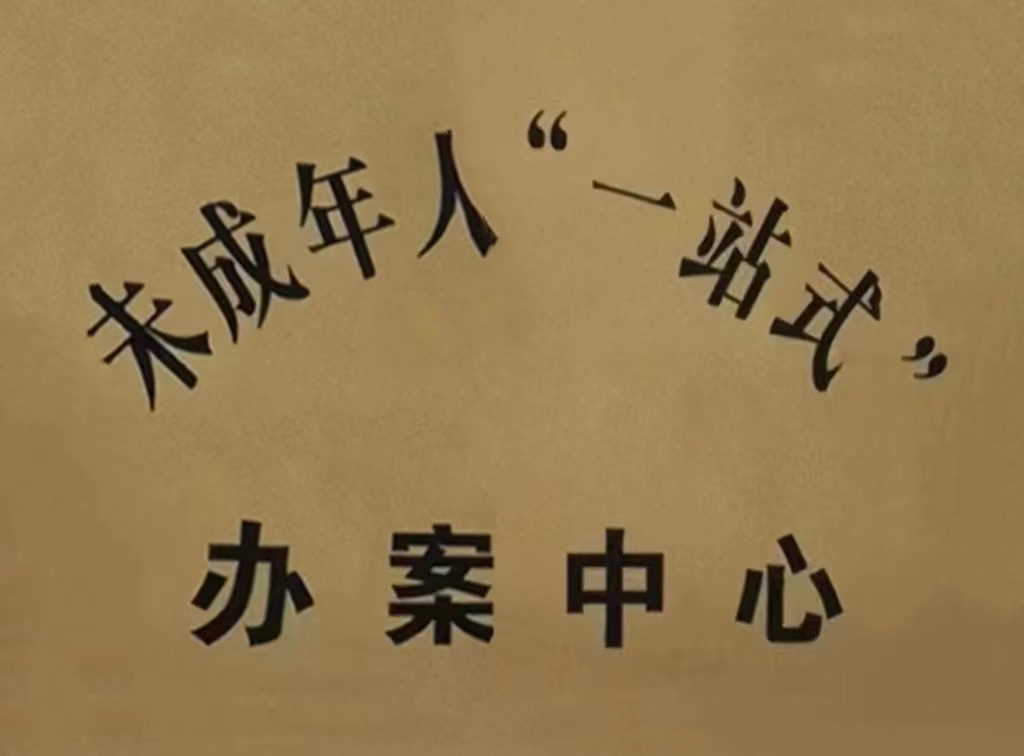 未成年人“一站式”
办案中心